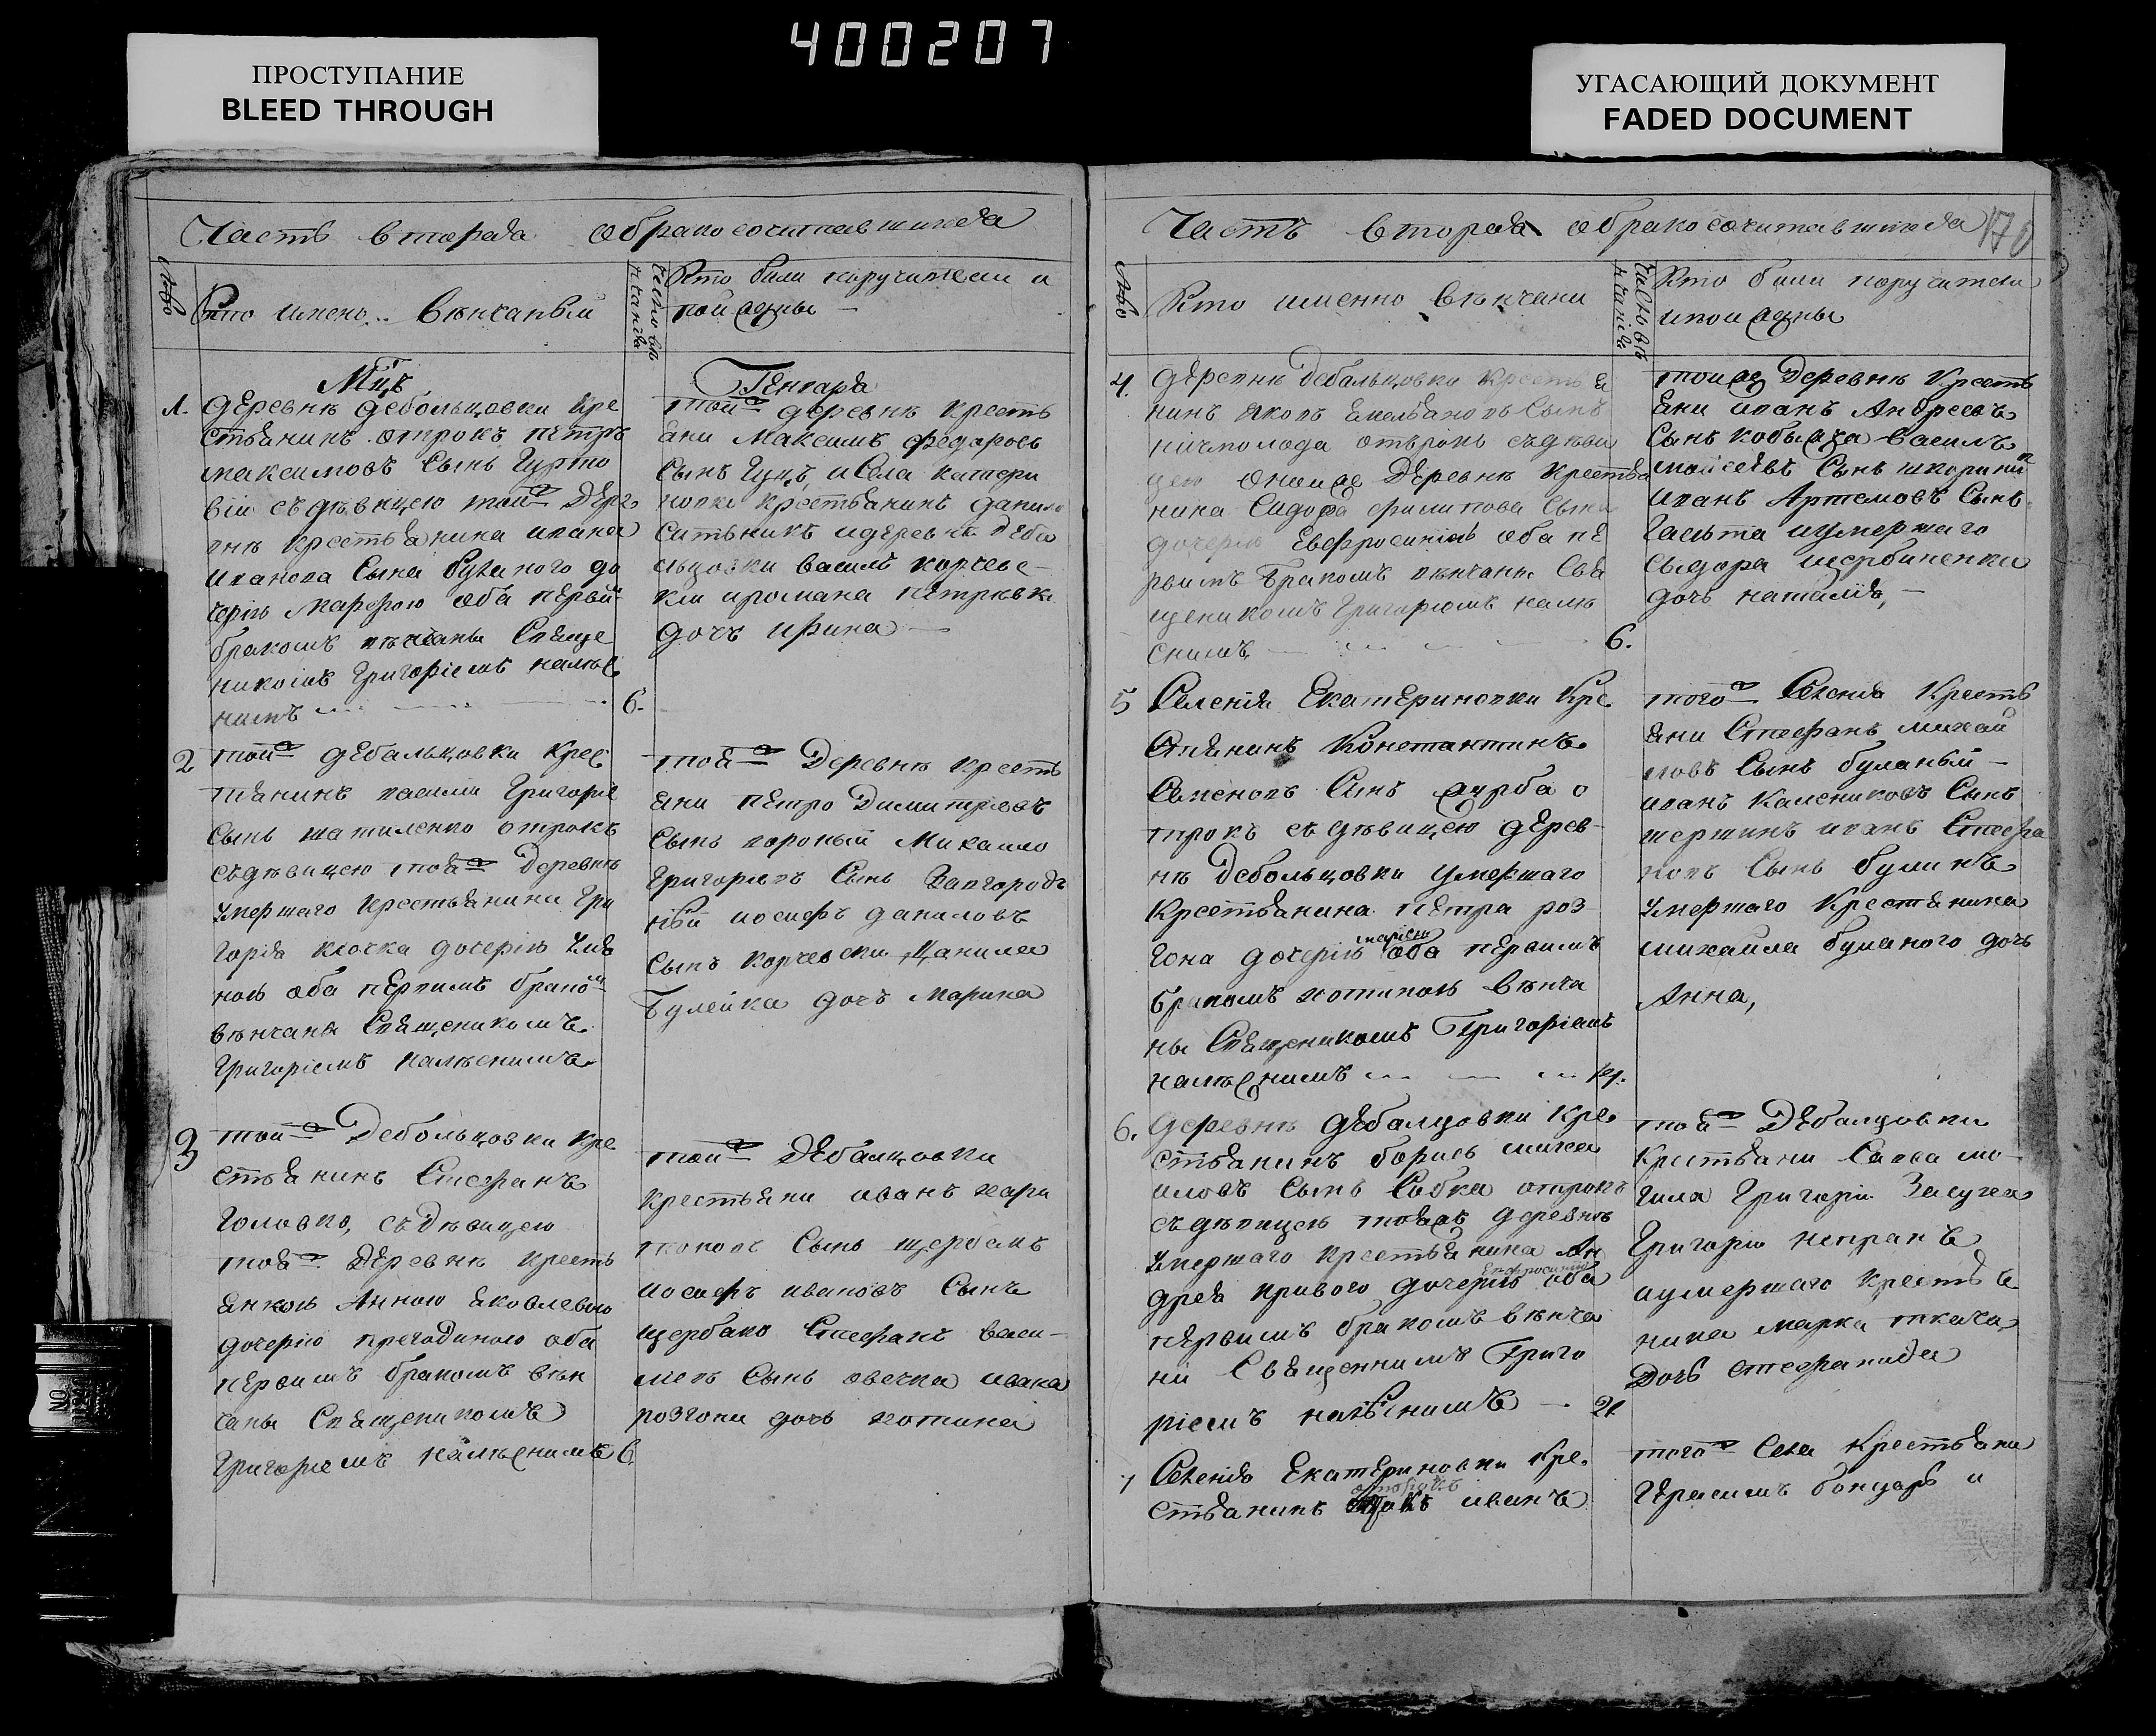 400207
ПРОСТУПАНИЕ
BLEED THROUGH
УГАСАЮЩИЙ ДОКУМЕНТ
FADED DOCUMENT
Часть вторая обракосочитавшихся
Кто имено вѣнчаный
Кто били поручители и
поизжны
Мцъ Генваря
1. деревнѣ дебольцовки кре
стьянинъ отрокъ пѣтръ
максимовъ сынъ Гурто
вій съ дѣвицею тойж дере
внѣ крестьянина ивана
иванова сына булѣного до
черію Марфою оба первы
бракомъ вѣнчаны Свяще
никомъ Григоріемъ калѣс
нимъ 6.
тойж деревнѣ кресть
яни Максимъ федоровъ
сынъ Гуцъ, и села катери
новки крестьянинъ данило
ситникъ и деревнѣ деба
льцовки василь корчевс
кии и романа петривки
дочъ ирина
2 тойж дебальцовки крес
тянинъ василии Григорі
сынъ шатиленко отрокъ
съ дѣвицею тояж деревнѣ
умершаго крестьянина Гри
горія клочка дочерію Уля
ною оба первимъ брако
вѣнчаны Священикомъ
Григоріемъ калѣснимъ
тояж деревнѣ кресть
яни петро Димитріевъ
сынъ вороный Михаило
Григориевъ сынъ Загород
ній иосифъ даниловъ
сынъ корчевски Данила
Гулейка дочъ Марина
3 тойж Дебольцовки кре
стьянинъ Стефанъ
Головко, съ дѣвицею
тояж деревнѣ кресть
янкою Анною яковлевою
дочерію пречодиною оба
первимъ бракомъ вѣн
чаны Священикомъ
Григориемъ калѣснимъ 6
тойж дебалцовки
крестьяни иванъ хари
тоновъ сынъ щербакъ
иосифъ ивановъ сынъ
щербако Стефанъ васи
лівъ сынъ овечка ивана
розгони дочъ хотина
Часть вторая обракосочитавшихся 170
Кто именно вѣнчани
Кто били поручители
и поизжны
4. деревнѣ дебальцовки крестья
нинъ яковъ Емельяновъ сынъ
отърокъ съ дѣви
цею оноиже деревнѣ крестья
нина Сидора филипова сына
дочерю Евфросиніею оба пе
рвимъ бракомъ вѣнчаны Свя
щеникомъ Григориемъ калѣ
снимъ 6.
тоиже деревнѣ кресть
яни иванъ Андреевъ
сынъ кобылка василь
мойсеевъ сынъ шкориній
иванъ Артемовъ сынъ
и умершаго
сыдора щербиненка
дочъ наталія,
5 Селенія Екатериновки кре
стянинъ Константинъ
Семеновъ сынъ журба о
трокъ съ дѣвицею дерев
нѣ дебольцовки умершаго
крестьянина петра роз
гона дочерію маріею оба первимъ
бракомъ хотиною вѣнча
ны Священикомъ Григоріемъ
калѣснимъ
тогож Селенія кресть
яни Стефанъ михай
ловъ сынъ буланый
иванъ Калениковъ сынъ
шершинъ иванъ Стефа
новъ сынъ булинъ
умершаго крестянина
михайла буланого дочъ
Анна,
6. деревнѣ дебалцовки кре
стьянинъ борисъ миха
иловъ сынъ Собка отрокъ
съ дѣвицею тояже деревнѣ
умершаго крестьянина Ан
дрея кривого дочерию Евфросиніею оба
первимъ бракомъ вѣнча
ни Священнимъ Григо
ріемъ калѣснимъ 21.
тояж дебалцовки
крестьяни Савва мо
гила Григорій Засуха
Григорій неправъ
а умершаго крестья
нина марка ткача
дочъ стефанида
7 Селенія Екатериновки кре
стьянинъ отрокъ иванъ
тогож села крестьяни
Герасимъ бондарь и